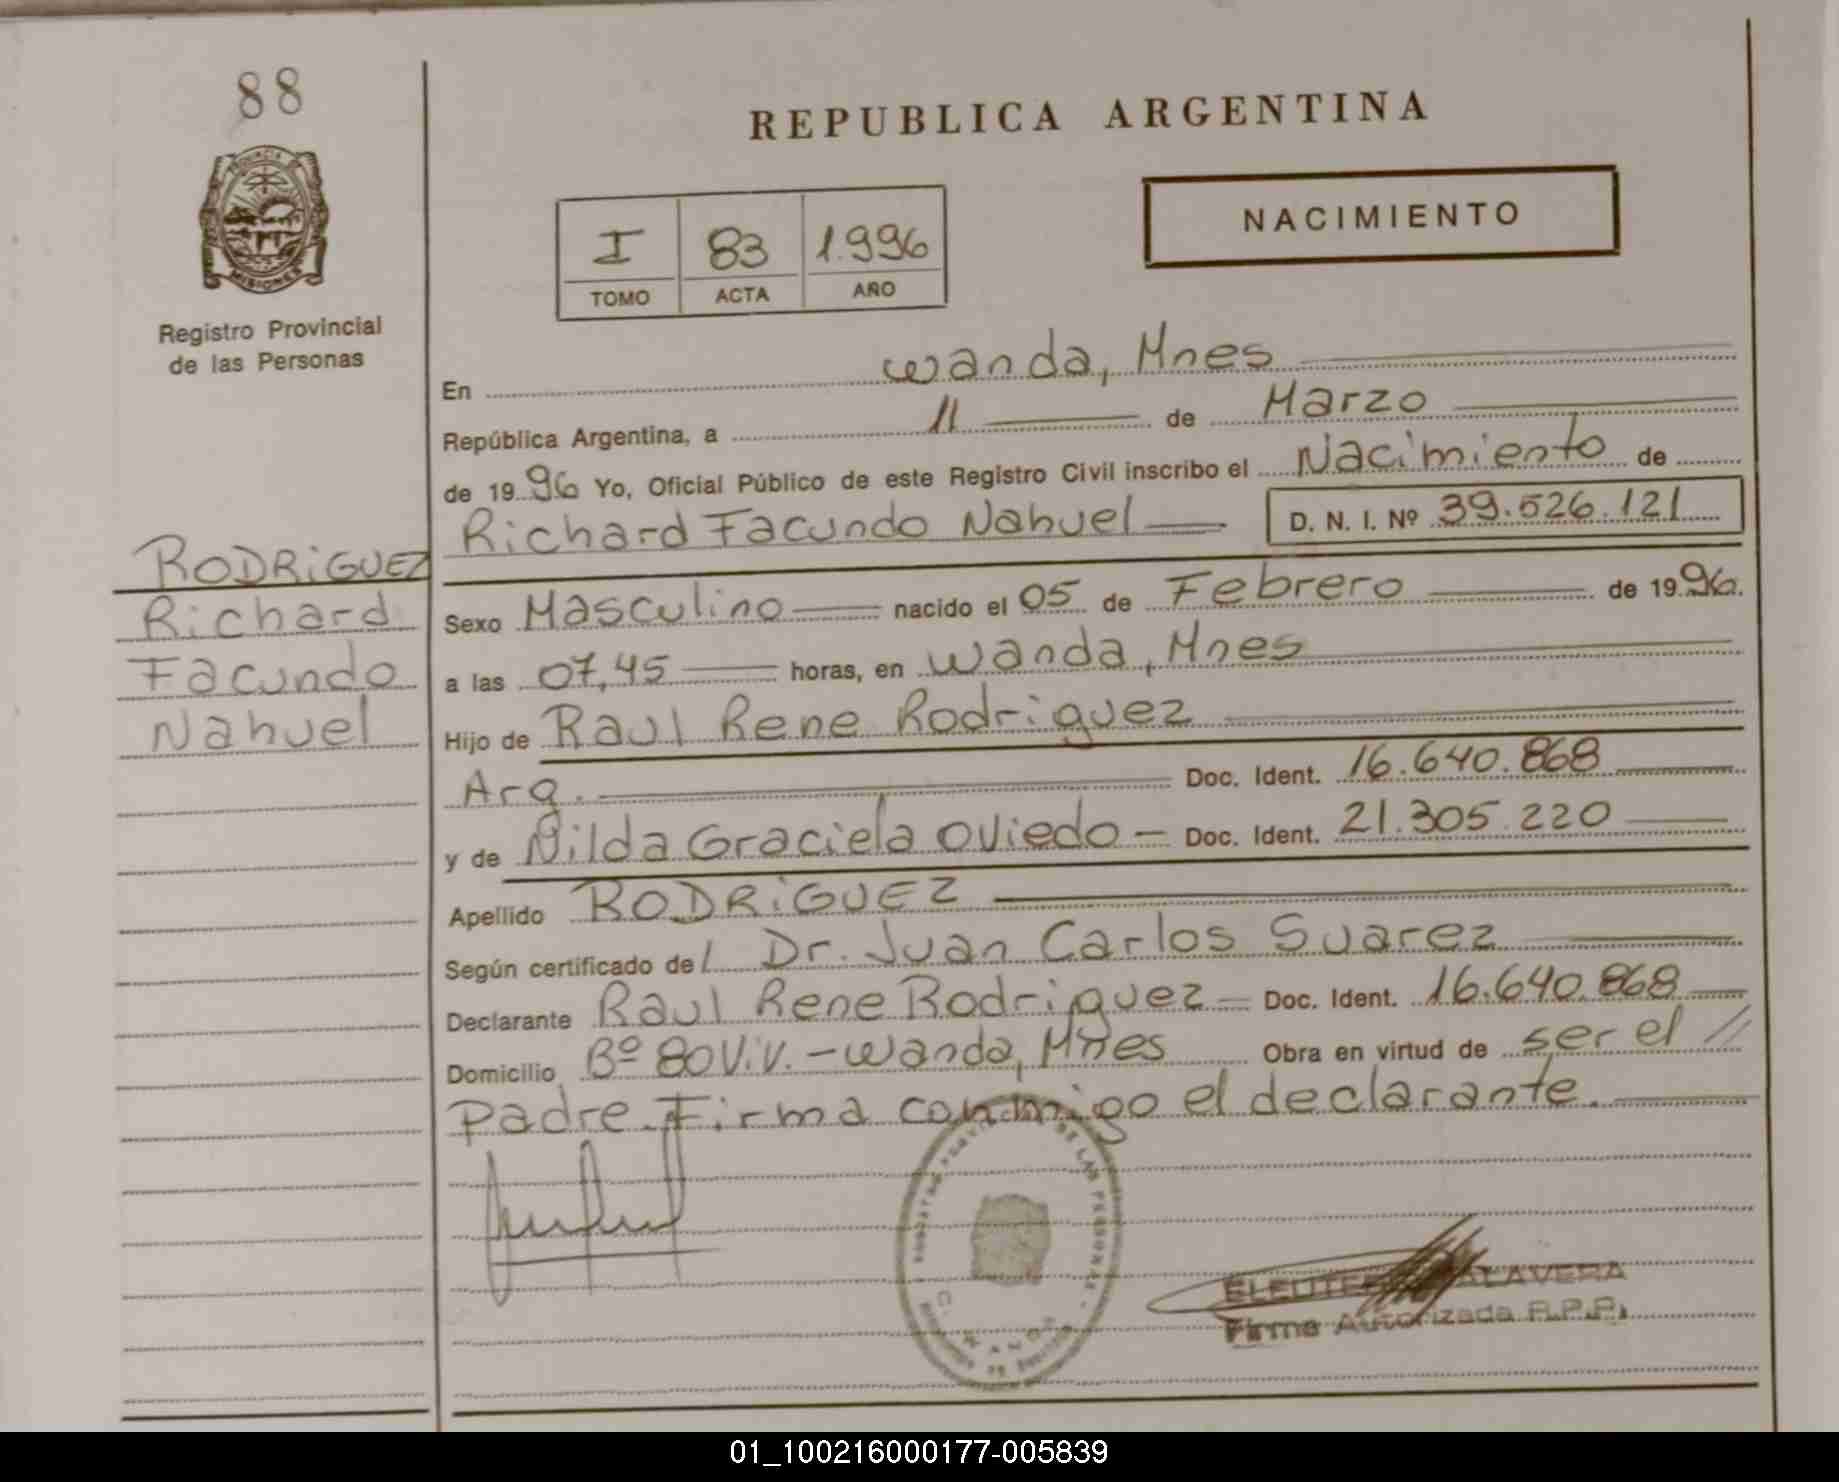 88
PROVINCIA DE
MISIONES
Registro Provincial
de las Personas
RODRIGUEZ
Richard
Facundo
Nahuel
REPUBLICA ARGENTINA
NACIMIENTO
I 83 1.996
TOMO ACTA AÑO
En Wanda, Mnes
República Argentina, a 11 de Marzo
de 1996 Yo, Oficial Público de este Registro Civil inscribo el Nacimiento de
Richard Facundo Nahuel D. N. I. Nº 39.526.121
Sexo Masculino nacido el 05 de Febrero de 1996.
a las 07,45 horas, en Wanda, Mnes
Hijo de Raul Rene Rodriguez
Arg. Doc. Ident. 16.640.868
y de Nilda Graciela Oviedo - Doc. Ident. 21.305.220
Apellido RODRIGUEZ
Según certificado del Dr. Juan Carlos Suarez
Declarante Raul Rene Rodriguez - Doc. Ident. 16.640.868
Domicilio Bº 80 Viv. - Wanda, Mnes Obra en virtud de ser el //
Padre. Firma conmigo el declarante.
DE LAS PERSONAS
WANDA
TALAVERA
Firma Autorizada R.P.P.
01_100216000177-005839